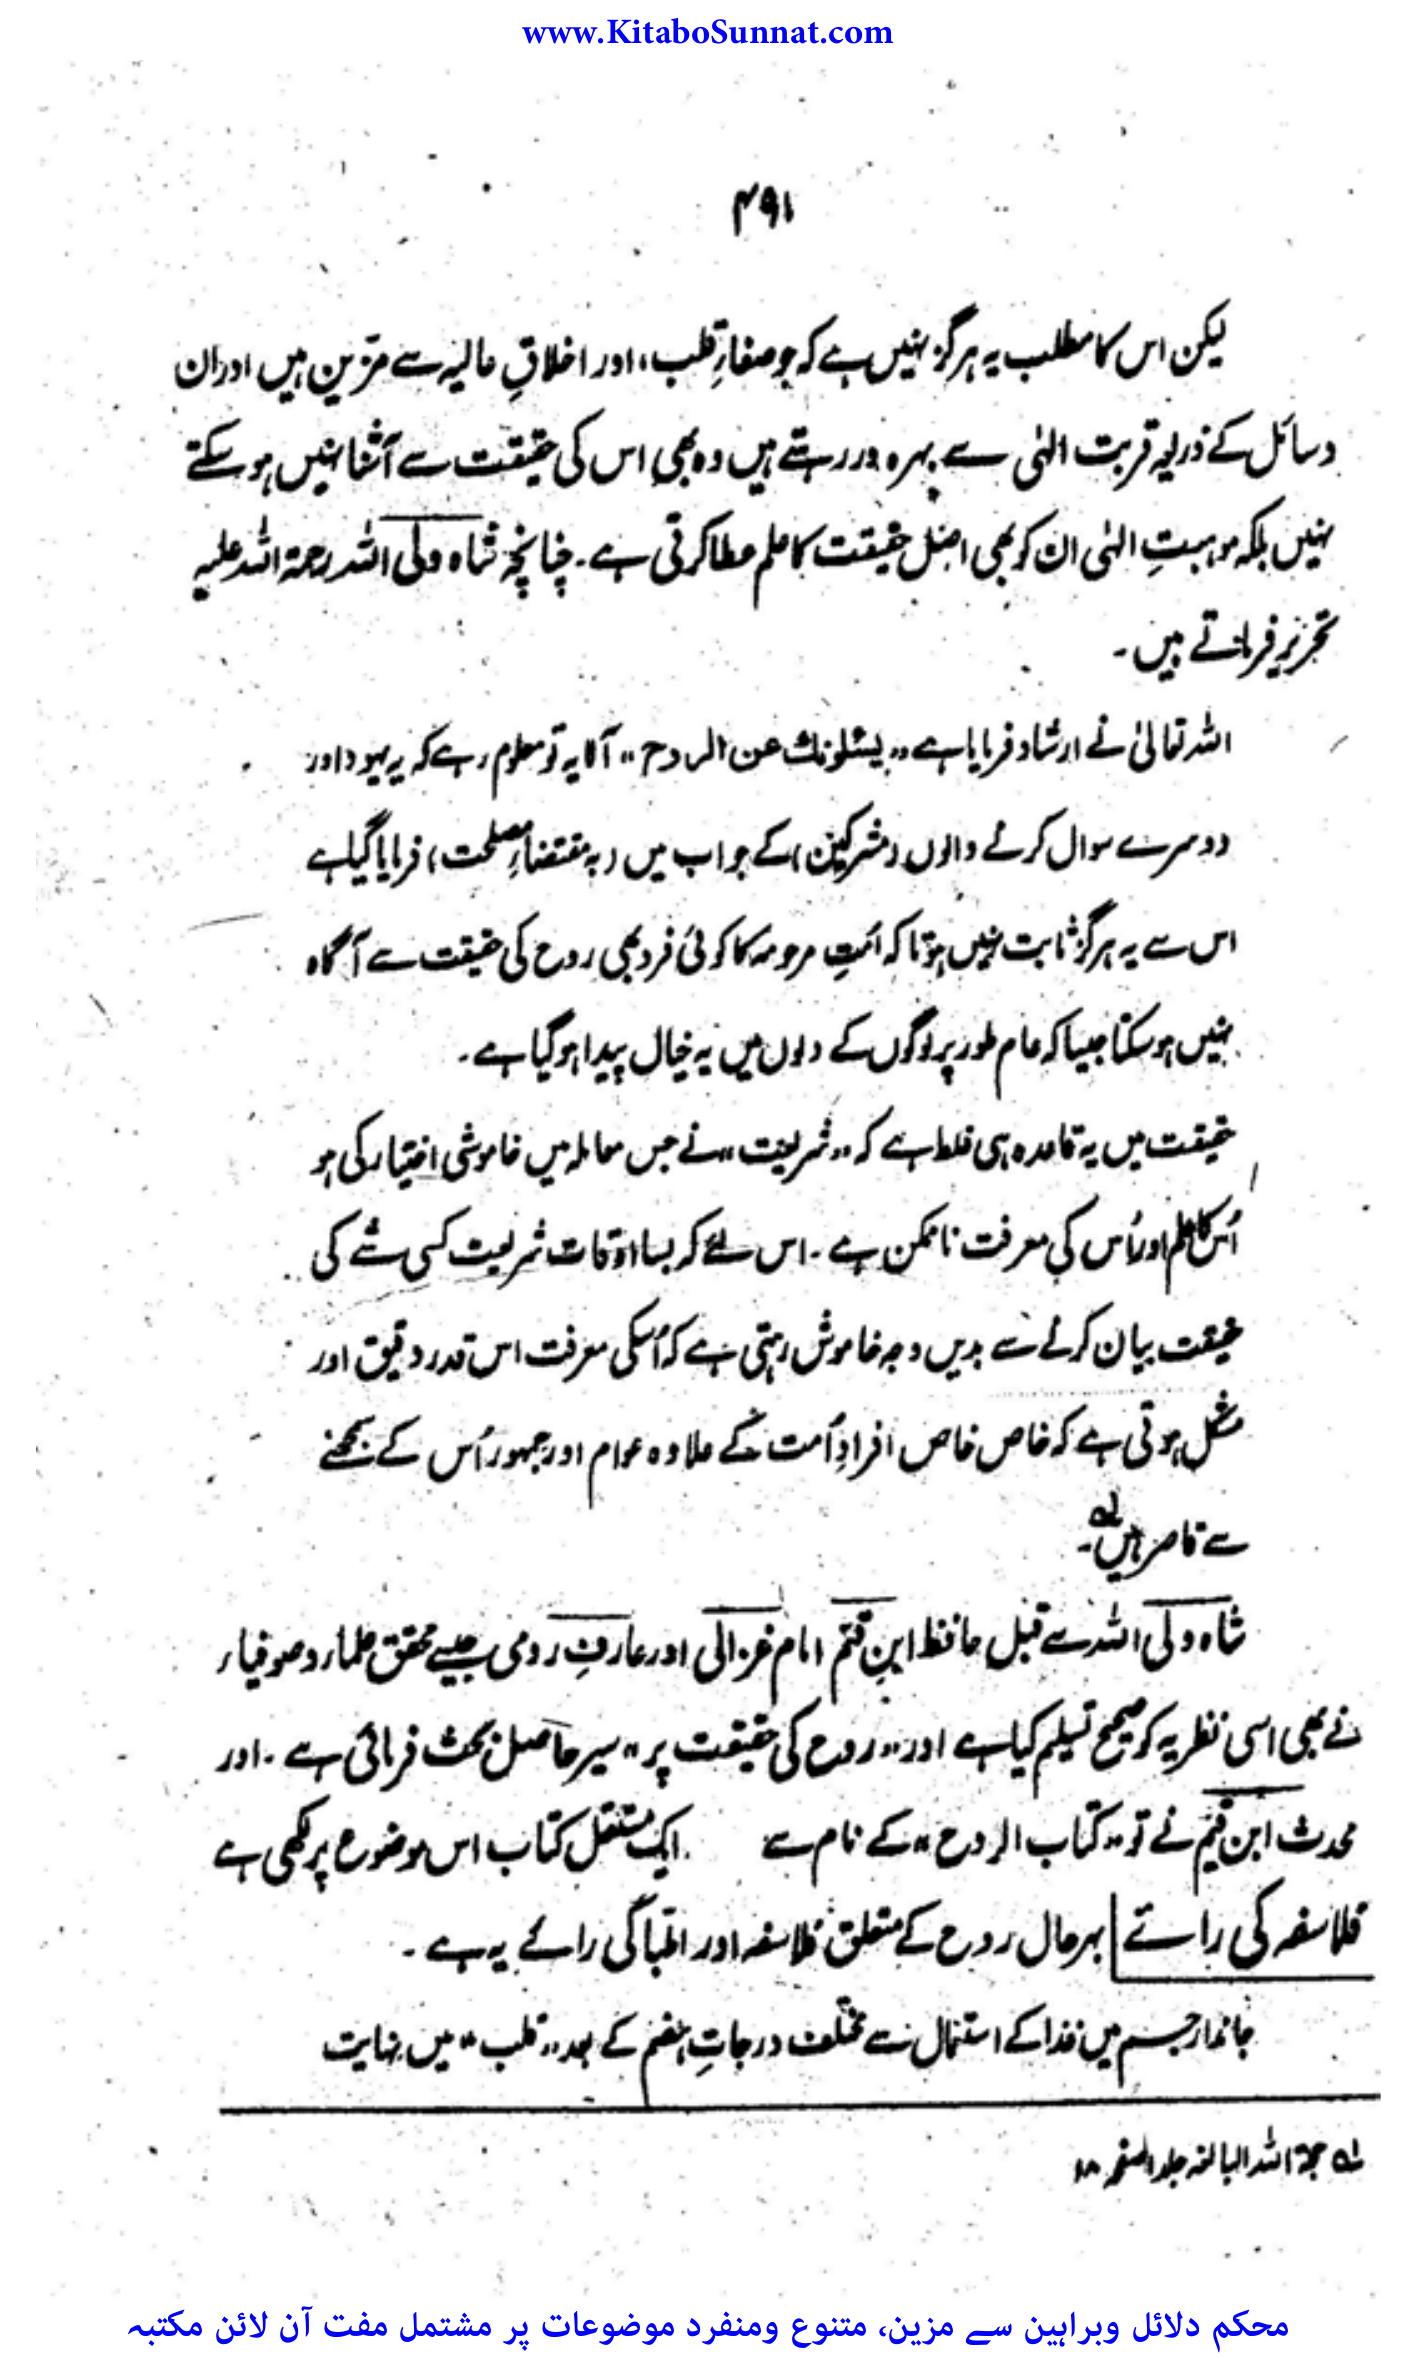 www.KitaboSunnat.com
۴۹۱
لیکن اس کا مطلب یہ ہرگز نہیں ہے کہ جو صفاءِ قلب، اور اخلاقِ عالیہ سے مزین ہیں اور ان
وسائل کے ذریعہ قربت الٰہی سے بہرہ ور رہتے ہیں وہ بھی اس کی حقیقت سے آشنا نہیں ہو سکتے
نہیں بلکہ موہبتِ الٰہی ان کو بھی اصل حقیقت کا علم عطا کرتی ہے۔ چنانچہ شاہ ولی اللہ رحمۃ اللہ علیہ
تحریر فرماتے ہیں۔
اللہ تعالیٰ نے ارشاد فرمایا ہے ”یسئلونك عن الروح“ الایہ تو معلوم رہے کہ یہ یہود اور
دوسرے سوال کرنے والوں (مشرکین) کے جواب میں (بہ مقتضاءِ مصلحت) فرمایا گیا ہے
اس سے یہ ہرگز ثابت نہیں ہوتا کہ امتِ مرحومہ کا کوئی فرد بھی روح کی حقیقت سے آگاہ
نہیں ہو سکتا جیسا کہ عام طور پر لوگوں کے دلوں میں یہ خیال پیدا ہو گیا ہے۔
حقیقت میں یہ قاعدہ ہی غلط ہے کہ ”شریعت“ نے جس معاملہ میں خاموشی اختیار کی ہو
اُس کا علم اور اُس کی معرفت ناممکن ہے۔ اس لئے کہ بسا اوقات شریعت کسی شے کی
حقیقت بیان کرنے سے بدیں وجہ خاموش رہتی ہے کہ اُسکی معرفت اس قدر دقیق اور
مشکل ہوتی ہے کہ خاص خاص افرادِ اُمت کے علاوہ عوام اور جمہور اُس کے سمجھنے
سے قاصر ہیں۔ لہ
شاہ ولی اللہ سے قبل حافظ ابنِ قیم امام غزالی اور عارفِ رومی جیسے محقق علماء و صوفیاء
نے بھی اسی نظریہ کو صحیح تسلیم کیا ہے اور ”روح کی حقیقت پر“ سیر حاصل بحث فرمائی ہے۔ اور
محدث ابن قیم نے تو ”کتاب الروح“ کے نام سے ایک مستقل کتاب اس موضوع پر لکھی ہے
فلاسفہ کی رائے بہرحال روح کے متعلق فلاسفہ اور اطبا کی رائے یہ ہے۔
جاندار جسم میں غذا کے استعمال سے مختلف درجاتِ ہضم کے بعد ”قلب“ میں نہایت
لہ حجۃ اللہ البالغہ جلد ۱ صفحہ ۱۸
محکم دلائل وبراہین سے مزین، متنوع ومنفرد موضوعات پر مشتمل مفت آن لائن مکتبہ